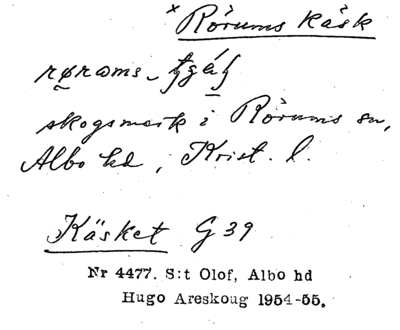 × Rörums Käsk
skogsmark i Rörums sn,
Albo hd, Krist. l.
Käsket G 39
Nr 4477. S:t Olof, Albo hd
Hugo Areskoug 1954-55.